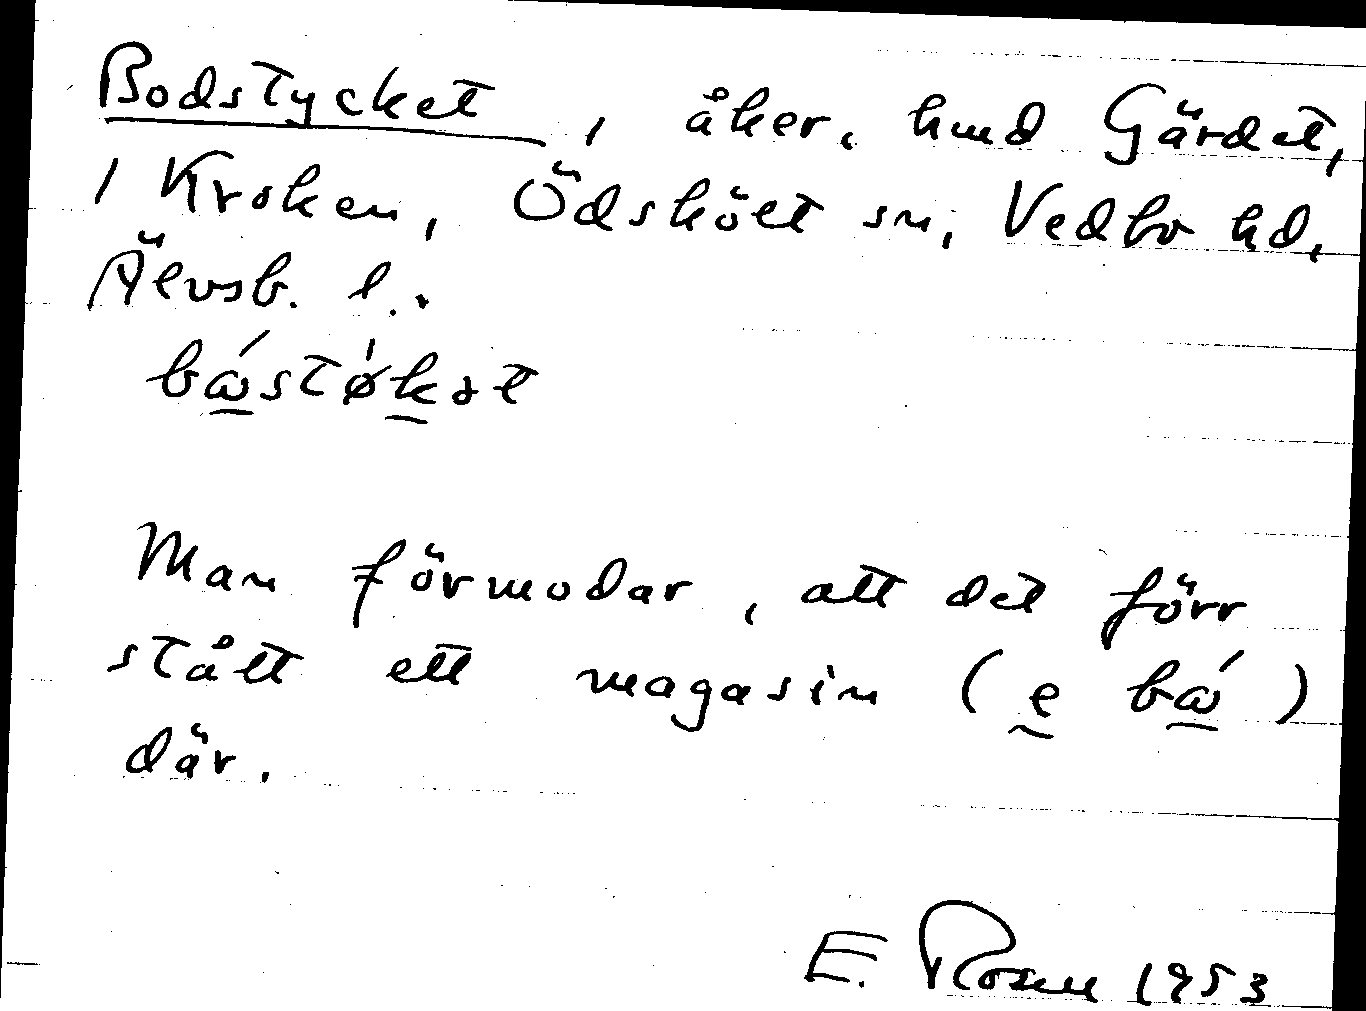 Bodstycket, åker, hmd Gärdet,
1 Kroken, Ödskölt sn, Vedbo hd,
Älvsb. l..
bástøkət
Man förmodar, att det förr
stått ett magasin (e bá)
där.
E. Rosen 1953